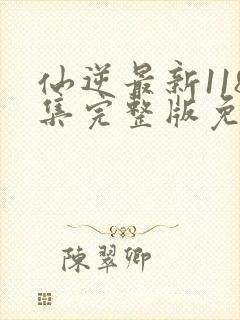 仙逆最新118
集完整版免
陳翠卿